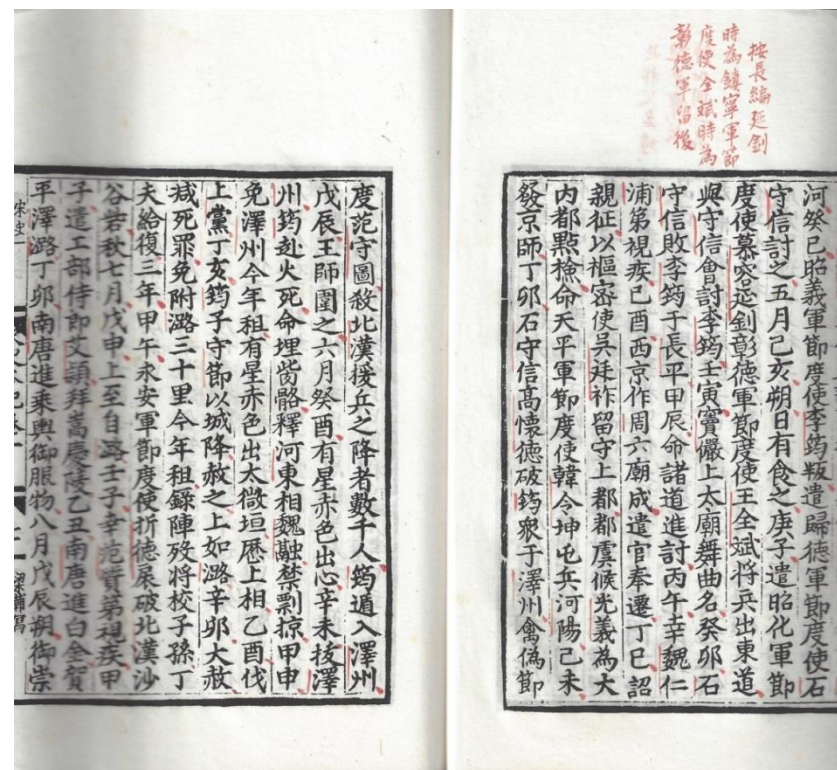 按長編延釗
時為鎮寧軍節
度使全斌時為
彰德軍留後
河癸巳昭義軍節度使李筠叛遣歸德軍節度使石
守信討之五月己亥朔日有食之庚子遣昭化軍節
度使慕容延釗彰德軍節度使王全斌將兵出東道
與守信會討李筠壬寅竇儼上太廟舞曲名癸卯石
守信敗李筠于長平甲辰命諸道進討丙午幸魏仁
浦第視疾己酉西京作周六廟成遣官奉遷丁巳詔
親征以樞密使吳廷祚留守上都都虞候光義為大
內都點檢命天平軍節度使韓令坤屯兵河陽己未
發京師丁卯石守信高懷德破筠衆于澤州禽偽節
度范守圖殺北漢援兵之降者數千人筠遁入澤州
戊辰王師圍之六月癸酉有星赤色出心辛未拔澤
州筠赴火死命埋胔骼釋河東相衛融禁剽掠甲申
免澤州今年租有星赤色出太微垣歷上相乙酉伐
上黨丁亥筠子守節以城降赦之上如潞辛卯大赦
減死罪免附潞三十里今年租錄陣歿將校子孫丁
夫給復三年甲午永安軍節度使折德扆破北漢沙
谷若秋七月戊申上至自潞壬子幸范質第視疾甲
子遣工部侍郎艾穎拜嵩慶陵乙丑南唐進白金賀
平澤潞丁卯南唐進乘輿御服物八月戊辰朔御崇
宋史一